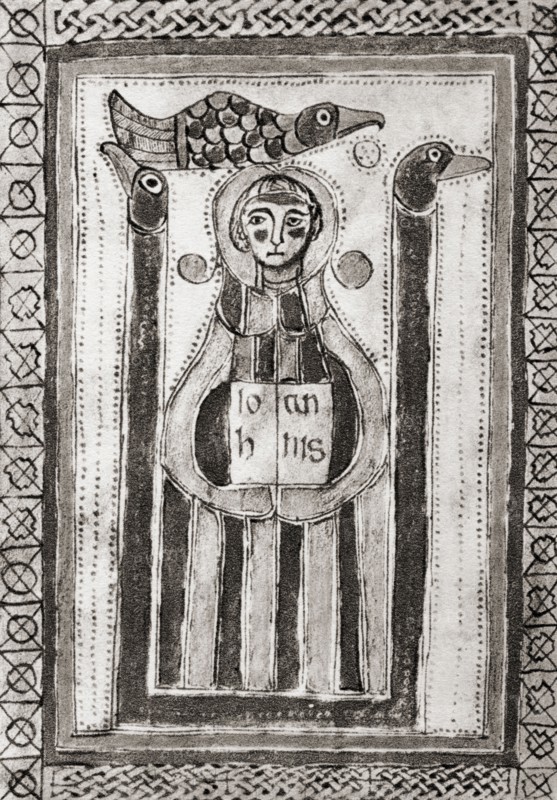 io an
h nis